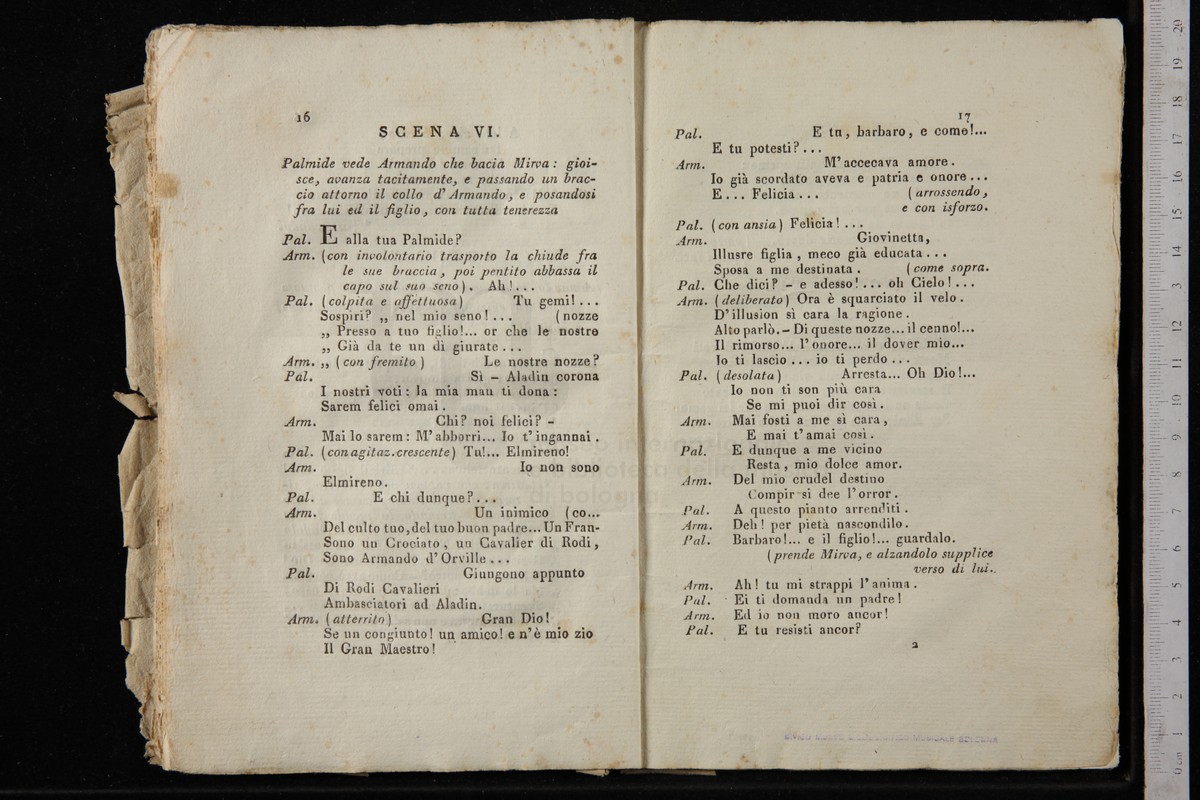 16
SCENA VI.
Palmide vede Armando che bacia Mirva: gioi-
sce, avanza tacitamente, e passando un brac-
cio attorno il collo d'Armando, e posandosi
fra lui ed il figlio, con tutta tenerezza
Pal. E alla tua Palmide?
Arm. (con involontario trasporto la chiude fra
le sue braccia, poi pentito abbassa il
capo sul suo seno). Ah!...
Pal. (colpita e affettuosa) Tu gemi!...
Sospiri? „ nel mio seno!... (nozze
„ Presso a tuo figlio!... or che le nostre
„ Già da te un dì giurate...
Arm. „ (con fremito) Le nostre nozze?
Pal. Sì – Aladin corona
I nostri voti: la mia man ti dona:
Sarem felici omai.
Arm. Chi? noi felici? –
Mai lo sarem: M'abborri... Io t'ingannai.
Pal. (con agitaz. crescente) Tu!... Elmireno!
Arm. Io non sono
Elmireno.
Pal. E chi dunque?...
Arm. Un inimico (co...
Del culto tuo, del tuo buon padre... Un Fran-
Sono un Crociato, un Cavalier di Rodi,
Sono Armando d'Orville...
Pal. Giungono appunto
Di Rodi Cavalieri
Ambasciatori ad Aladin.
Arm. (atterrito) Gran Dio!
Se un congiunto! un amico! e n'è mio zio
Il Gran Maestro!
17
Pal. E tu, barbaro, e come!...
E tu potesti?...
Arm. M'accecava amore.
Io già scordato aveva e patria e onore...
E... Felicia... (arrossendo,
e con isforzo.
Pal. (con ansia) Felicia!...
Arm. Giovinetta,
Illusre figlia, meco già educata...
Sposa a me destinata. (come sopra.
Pal. Che dici? – e adesso!... oh Cielo!...
Arm. (deliberato) Ora è squarciato il velo.
D'illusion sì cara la ragione.
Alto parlò. – Di queste nozze... il cenno!...
Il rimorso... l'onore... il dover mio...
Io ti lascio... io ti perdo...
Pal. (desolata) Arresta... Oh Dio!...
Io non ti son più cara
Se mi puoi dir così.
Arm. Mai fosti a me sì cara,
E mai t'amai così.
Pal. E dunque a me vicino
Resta, mio dolce amor.
Arm. Del mio crudel destino
Compir si dee l'orror.
Pal. A questo pianto arrenditi.
Arm. Deh! per pietà nascondilo.
Pal. Barbaro!... e il figlio!... guardalo.
(prende Mirva, e alzandolo supplice
verso di lui.
Arm. Ah! tu mi strappi l'anima.
Pal. Ei ti domanda un padre!
Arm. Ed io non moro ancor!
Pal. E tu resisti ancor?
2